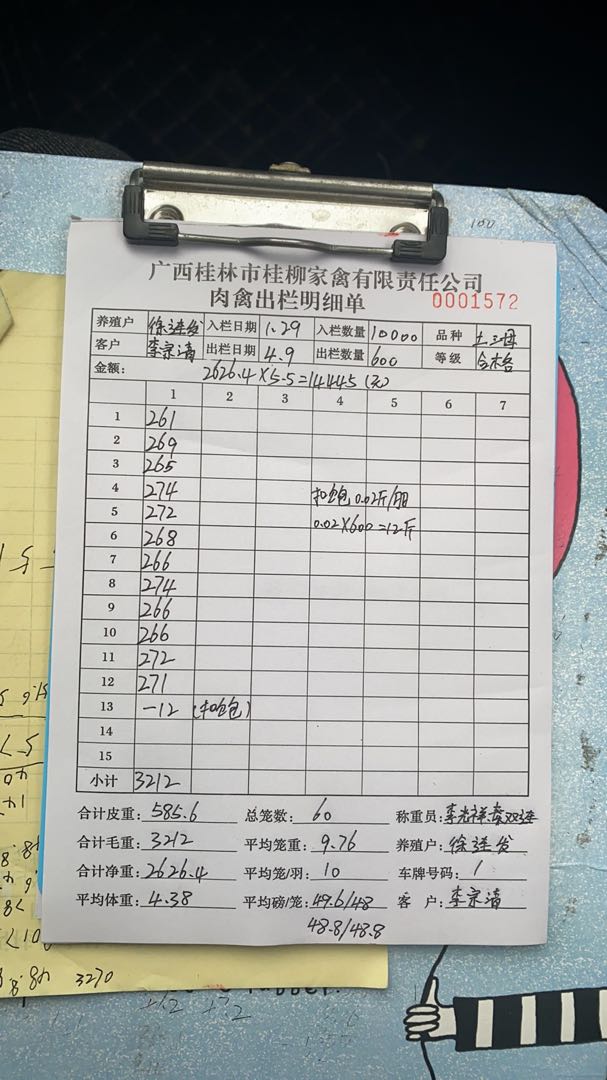 100
广西桂林市桂柳家禽有限责任公司
肉禽出栏明细单 0001572
养殖户 徐连发 入栏日期 1.29 入栏数量 10000 品种 土三母
客户 李宗清 出栏日期 4.9 出栏数量 600 等级 合格
金额: 2626.4×5.5=14445(元)
1 2 3 4 5 6 7
1 261
2 269
3 265
4 274 扣饱0.02斤/羽
5 272 0.02×600=12斤
6 268
7 266
8 274
9 266
10 266
11 272
12 271
13 -12
14
15
小计 3212
合计皮重: 585.6 总笼数: 60 称重员:
合计毛重: 3212 平均笼重: 9.76 养殖户: 徐连发
合计净重: 2626.4 平均笼/羽: 10 车牌号码: 1
平均体重: 4.38 平均磅/笼: 49.6/48 客 户: 李宗清
48.8/48.8
3270